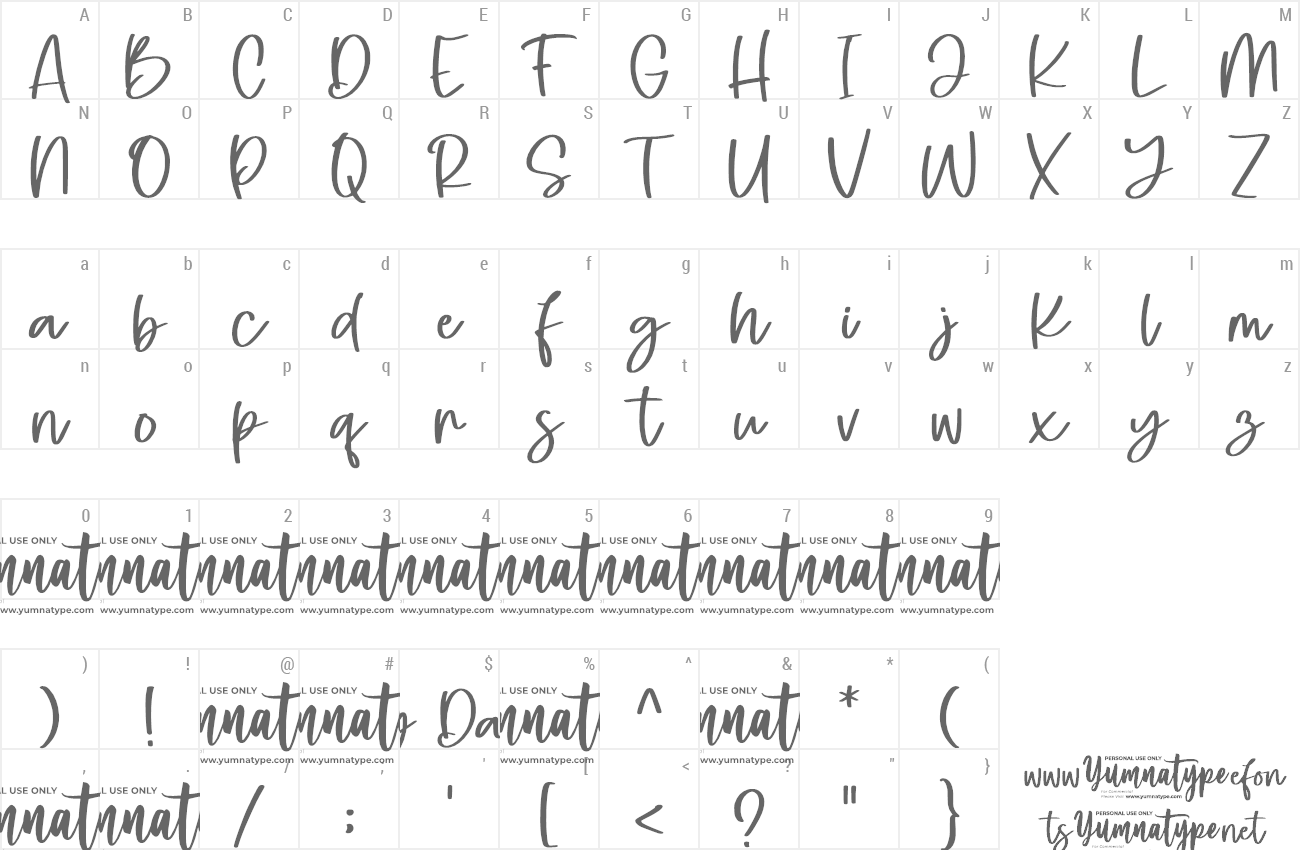 A B C D E F G H I J K L M
A B C D E F G H I J K L M
N O P Q R S T U V W X Y Z
N O P Q R S T U V W X Y Z
a b c d e f g h i j k l m
a b c d e f g h i j k l m
n o p q r s t u v w x y z
n o p q r s t u v w x y z
0 1 2 3 4 5 6 7 8 9
L USE ONLY L USE ONLY L USE ONLY L USE ONLY L USE ONLY L USE ONLY L USE ONLY L USE ONLY L USE ONLY L USE ONLY
nnat nnat nnat nnat nnat nnat nnat nnat nnat nnat
ww.yumnatype.com www.yumnatype.com www.yumnatype.com www.yumnatype.com www.yumnatype.com www.yumnatype.com www.yumnatype.com www.yumnatype.com www.yumnatype.com www.yumnatype.com
) ! @ # $ % ^ & * (
L USE ONLY L USE ONLY L USE ONLY L USE ONLY
) ! nnat nnat Da nnat ^ nnat * (
www.yumnatype.com www.yumnatype.com www.yumnatype.com www.yumnatype.com
, . / ; ' [ < ? " }
L USE ONLY L USE ONLY
nnat nnat / ; ' [ < ? " }
PERSONAL USE ONLY
www Yumnatype efon
www.yumnatype.com
PERSONAL USE ONLY
ts Yumnatype net